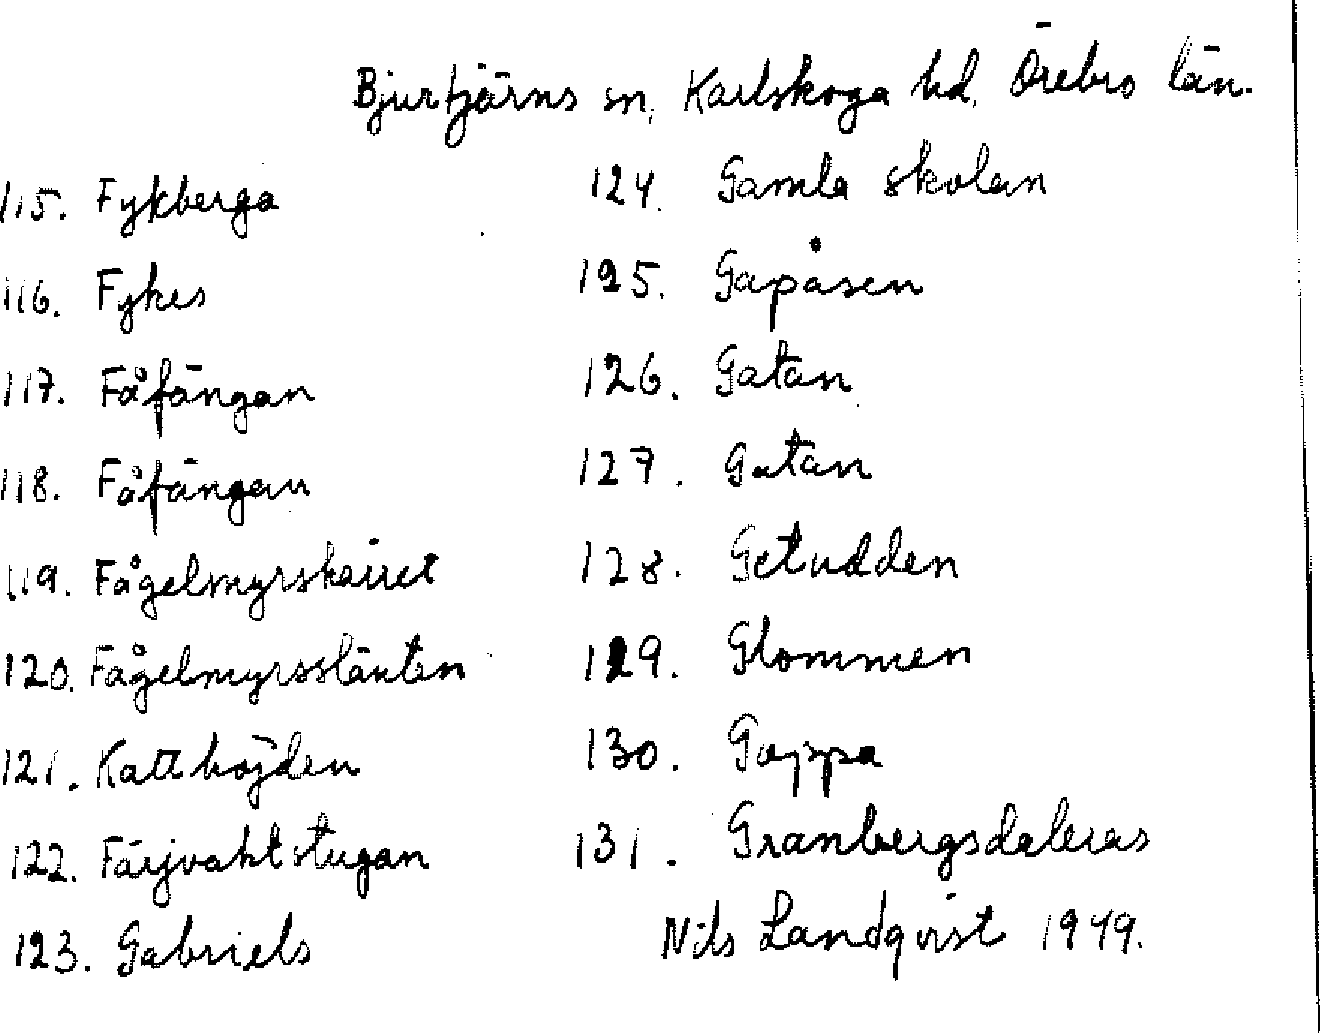 Bjurtjärns sn, Karlskoga hd, Örebro län.
115. Fykberga
116. Fykes
117. Fåfängan
118. Fåfängan
119. Fågelmyrskärret
120. Fågelmyrsslänten
121. Katthöjden
122. Färjvaktstugan
123. Gabriels
124. Gamla skolan
125. Gapåsen
126. Gatan
127. Gatan
128. Getudden
129. Glommen
130. Goppa
131. Granbergsdaleras
Nils Landqvist 1949.